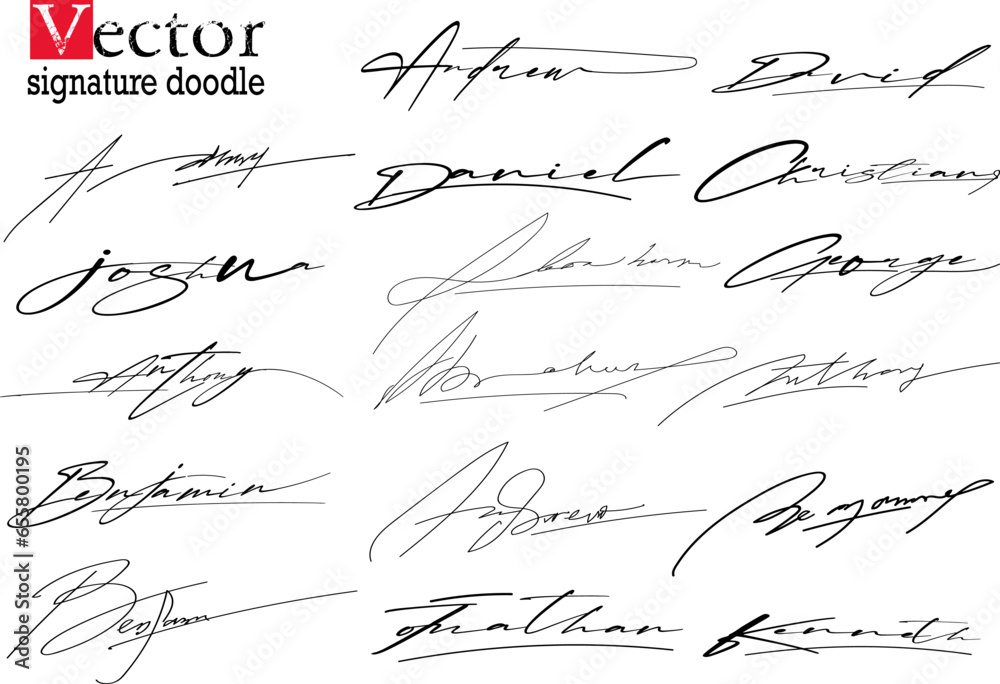 Vector
signature doodle
Andrew
David
Daniel
Christian
Joshua
Abraham
George
Anthony
Abraham
Anthony
Benjamin
Andrew
Benjamin
Jonathan
Kenneth
Adobe Stock | #655800195